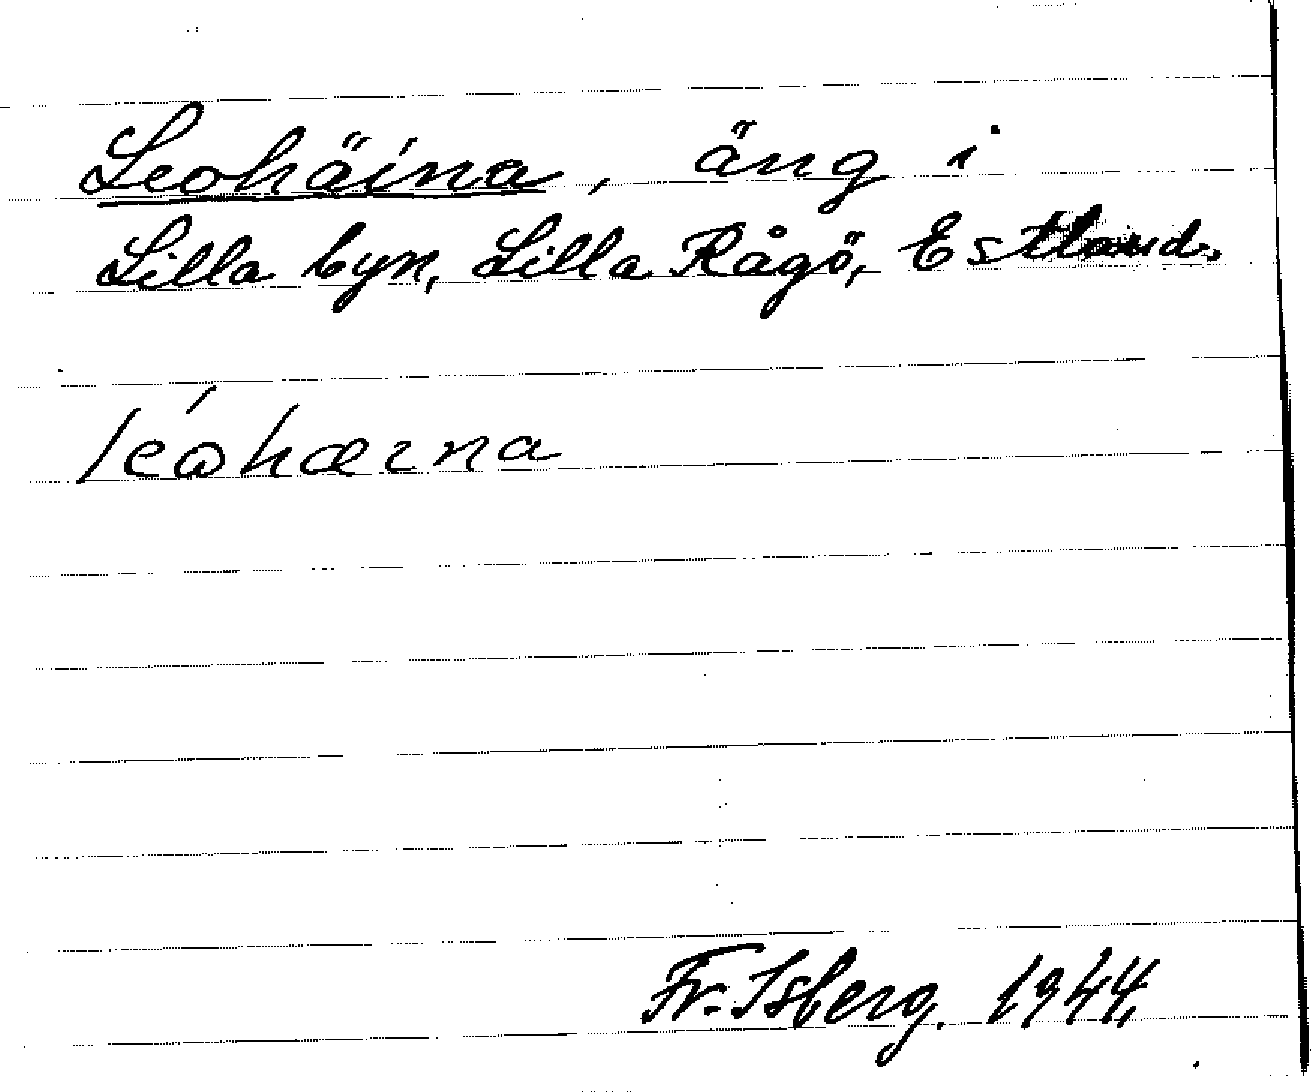 Leohäina, äng i
Lilla byn, Lilla Rågö, Estland.
léωhæɪna
Fr. Isberg. 1944.